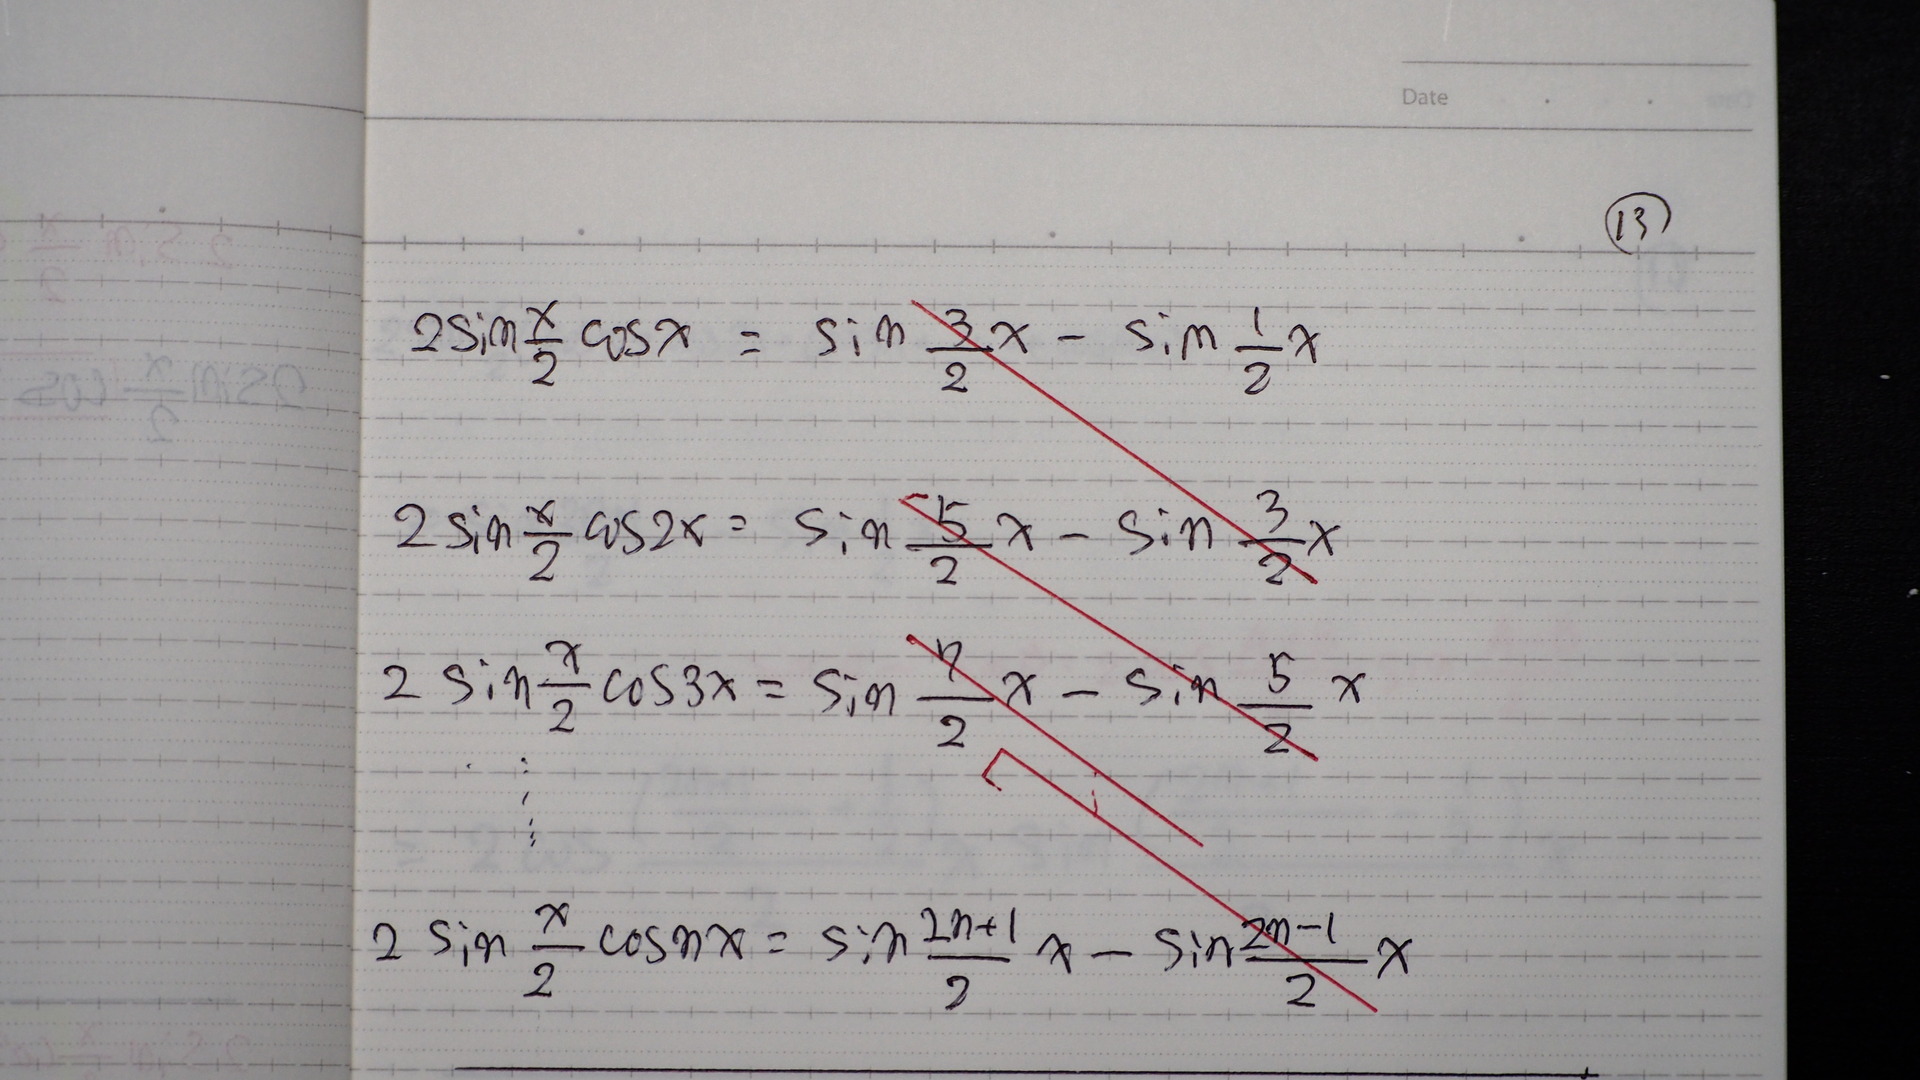 Date
13
2 sin x/2 cos x = sin 3/2 x - sin 1/2 x
2 sin x/2 cos 2x = sin 5/2 x - sin 3/2 x
2 sin x/2 cos 3x = sin 7/2 x - sin 5/2 x
⋮
2 sin x/2 cos nx = sin (2n+1)/2 x - sin (2n-1)/2 x